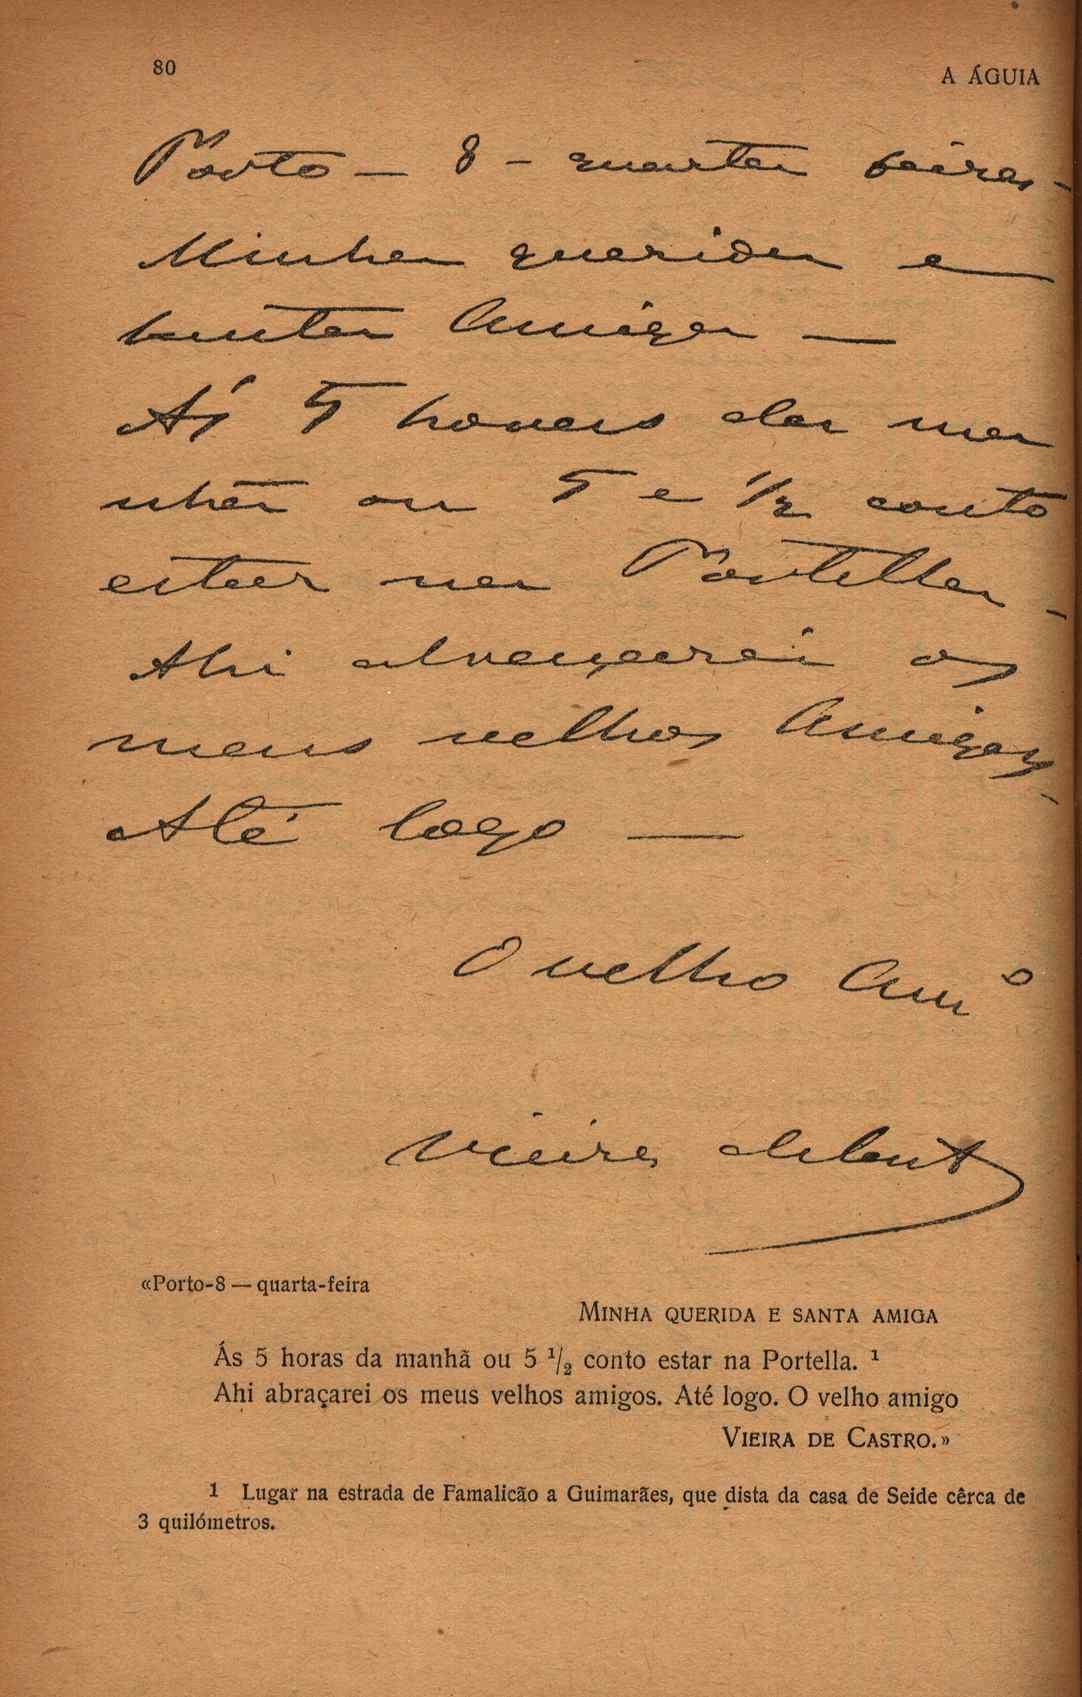 80
A ÁGUIA
Porto — 8 — quarta feira —
Minha querida e
santa Amiga —
Ás 5 horas da ma
nhã ou 5 e 1/2 conto
estar na Portella —
Ahi abraçarei os
meus velhos Amigos —
Até logo —
O velho Am.º
Vieira de Cast.
«Porto-8 — quarta-feira
MINHA QUERIDA E SANTA AMIGA
Ás 5 horas da manhã ou 5 1/2 conto estar na Portella. 1
Ahi abraçarei os meus velhos amigos. Até logo. O velho amigo
VIEIRA DE CASTRO.»
1 Lugar na estrada de Famalicão a Guimarães, que dista da casa de Seide cêrca de
3 quilómetros.